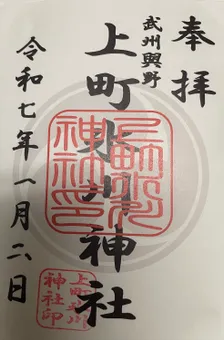 奉拝
武州與野
上町氷川神社
令和七年一月二日
上町氷川神社印
上町氷川
神社印